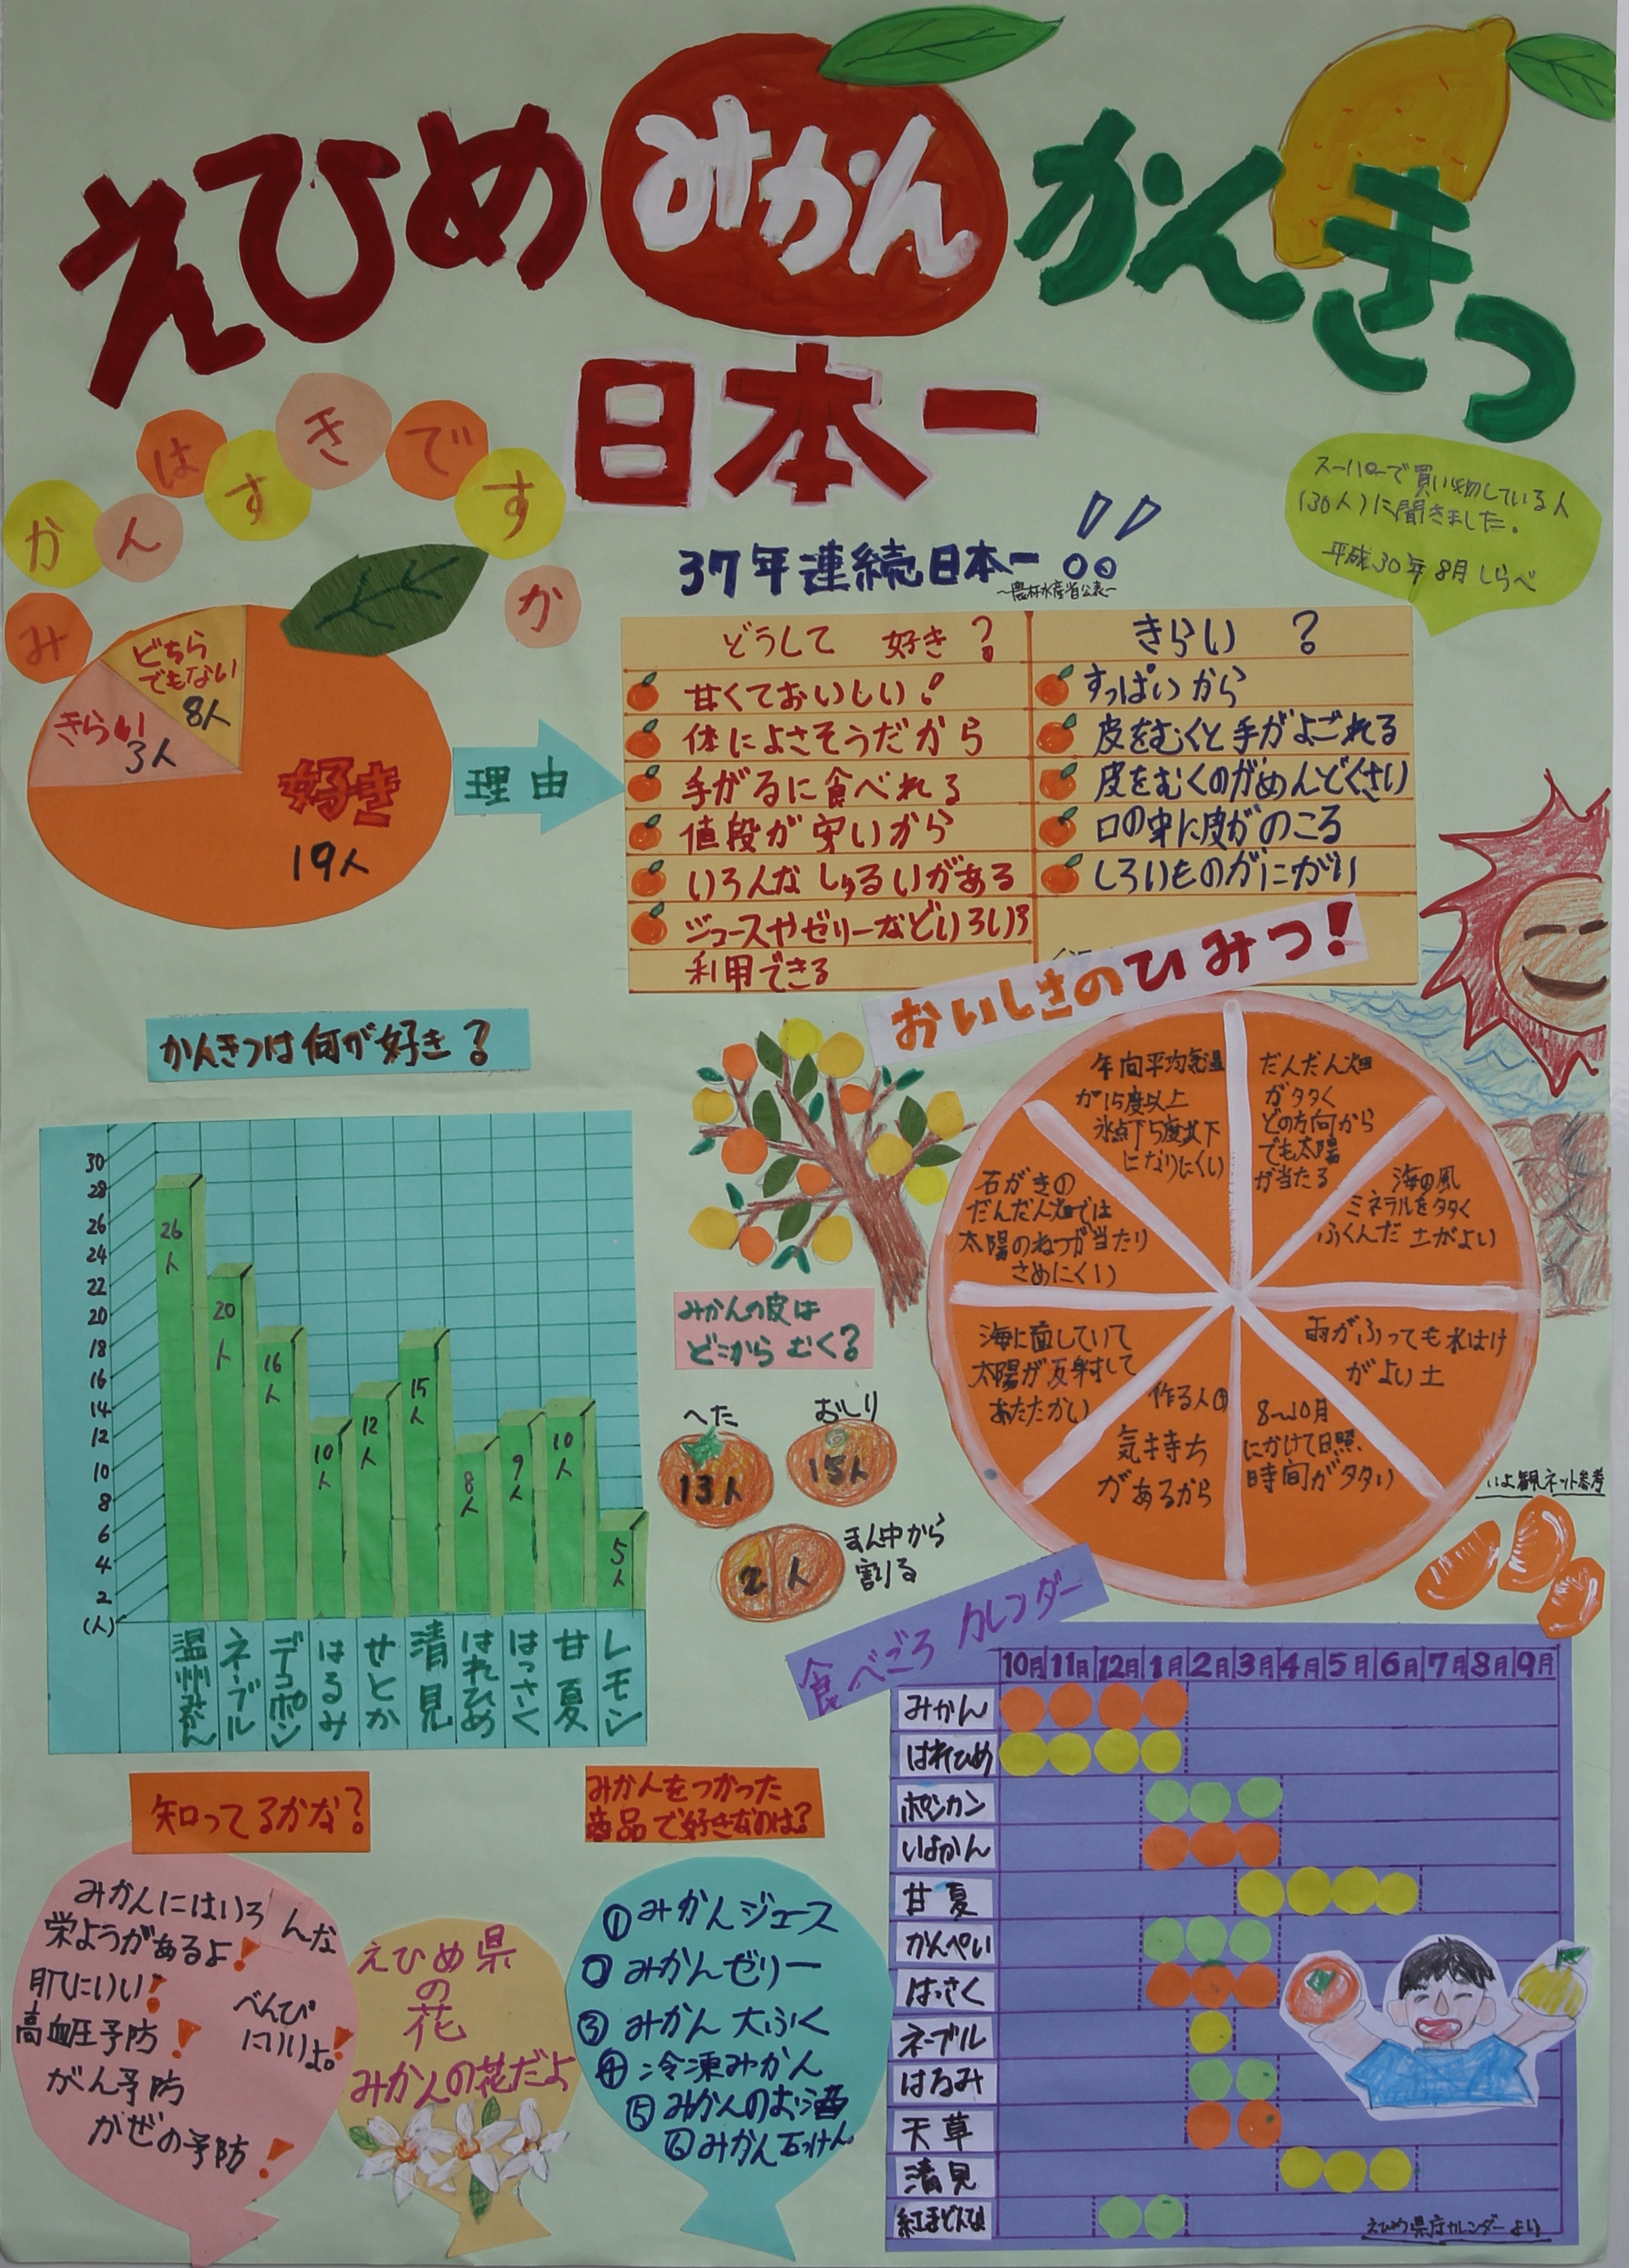 えひめ みかん かんきつ
日本一
37年連続日本一!!
~農林水産省公表~
スーパーで買い物している人
(30人)に聞きました。
平成30年8月しらべ
みかんはすきですか
どちら
でもない
8人
きらい
3人
好き
19人
理由
どうして 好き?
甘くておいしい!
体によさそうだから
手がるに食べれる
値段が安いから
いろんなしゅるいがある
ジュースやゼリーなどいろいろ
利用できる
きらい ?
すっぱいから
皮をむくと手がよごれる
皮をむくのがめんどくさい
口の中に皮がのこる
しろいものがにがい
かんきつは何が好き?
30
28
26
24
22
20
18
16
14
12
10
8
6
4
2
(人)
26人
20人
16人
10人
12人
15人
8人
9人
10人
5人
温州みかん
ネーブル
デコポン
はるみ
せとか
清見
はれひめ
はっさく
甘夏
レモン
おいしさのひみつ!
年間平均気温
が15度以上
氷点下5度以下
になりにくい
だんだん畑
が多く
どの方向から
でも太陽
が当たる
海の風
ミネラルを多く
ふくんだ 土がよい
雨がふっても水はけ
がよい土
8~10月
にかけて日照
時間が多い
作る人の
気持ち
があるから
海に面していて
太陽が反射して
あたたかい
石がきの
だんだん畑では
太陽のねつが当たり
さめにくい
いよ観ネット参考
みかんの皮は
どこからむく?
へた
13人
おしり
15人
2人
まん中から
割る
食べごろカレンダー
10月 11月 12月 1月 2月 3月 4月 5月 6月 7月 8月 9月
みかん
はれひめ
ポンカン
いよかん
甘夏
かんぺい
はっさく
ネーブル
はるみ
天草
清見
紅まどんな
えひめ県庁カレンダーより
知ってるかな?
みかんにはいろんな
栄ようがあるよ!
肌にいい!
べんぴ
にいいよ!
高血圧予防!
がん予防
かぜの予防!
えひめ県
の
花
みかんの花だよ
みかんをつかった
商品で好きなのは?
①みかんジュース
②みかんゼリー
③みかん大ふく
④冷凍みかん
⑤みかんのお酒
⑥みかん石けん